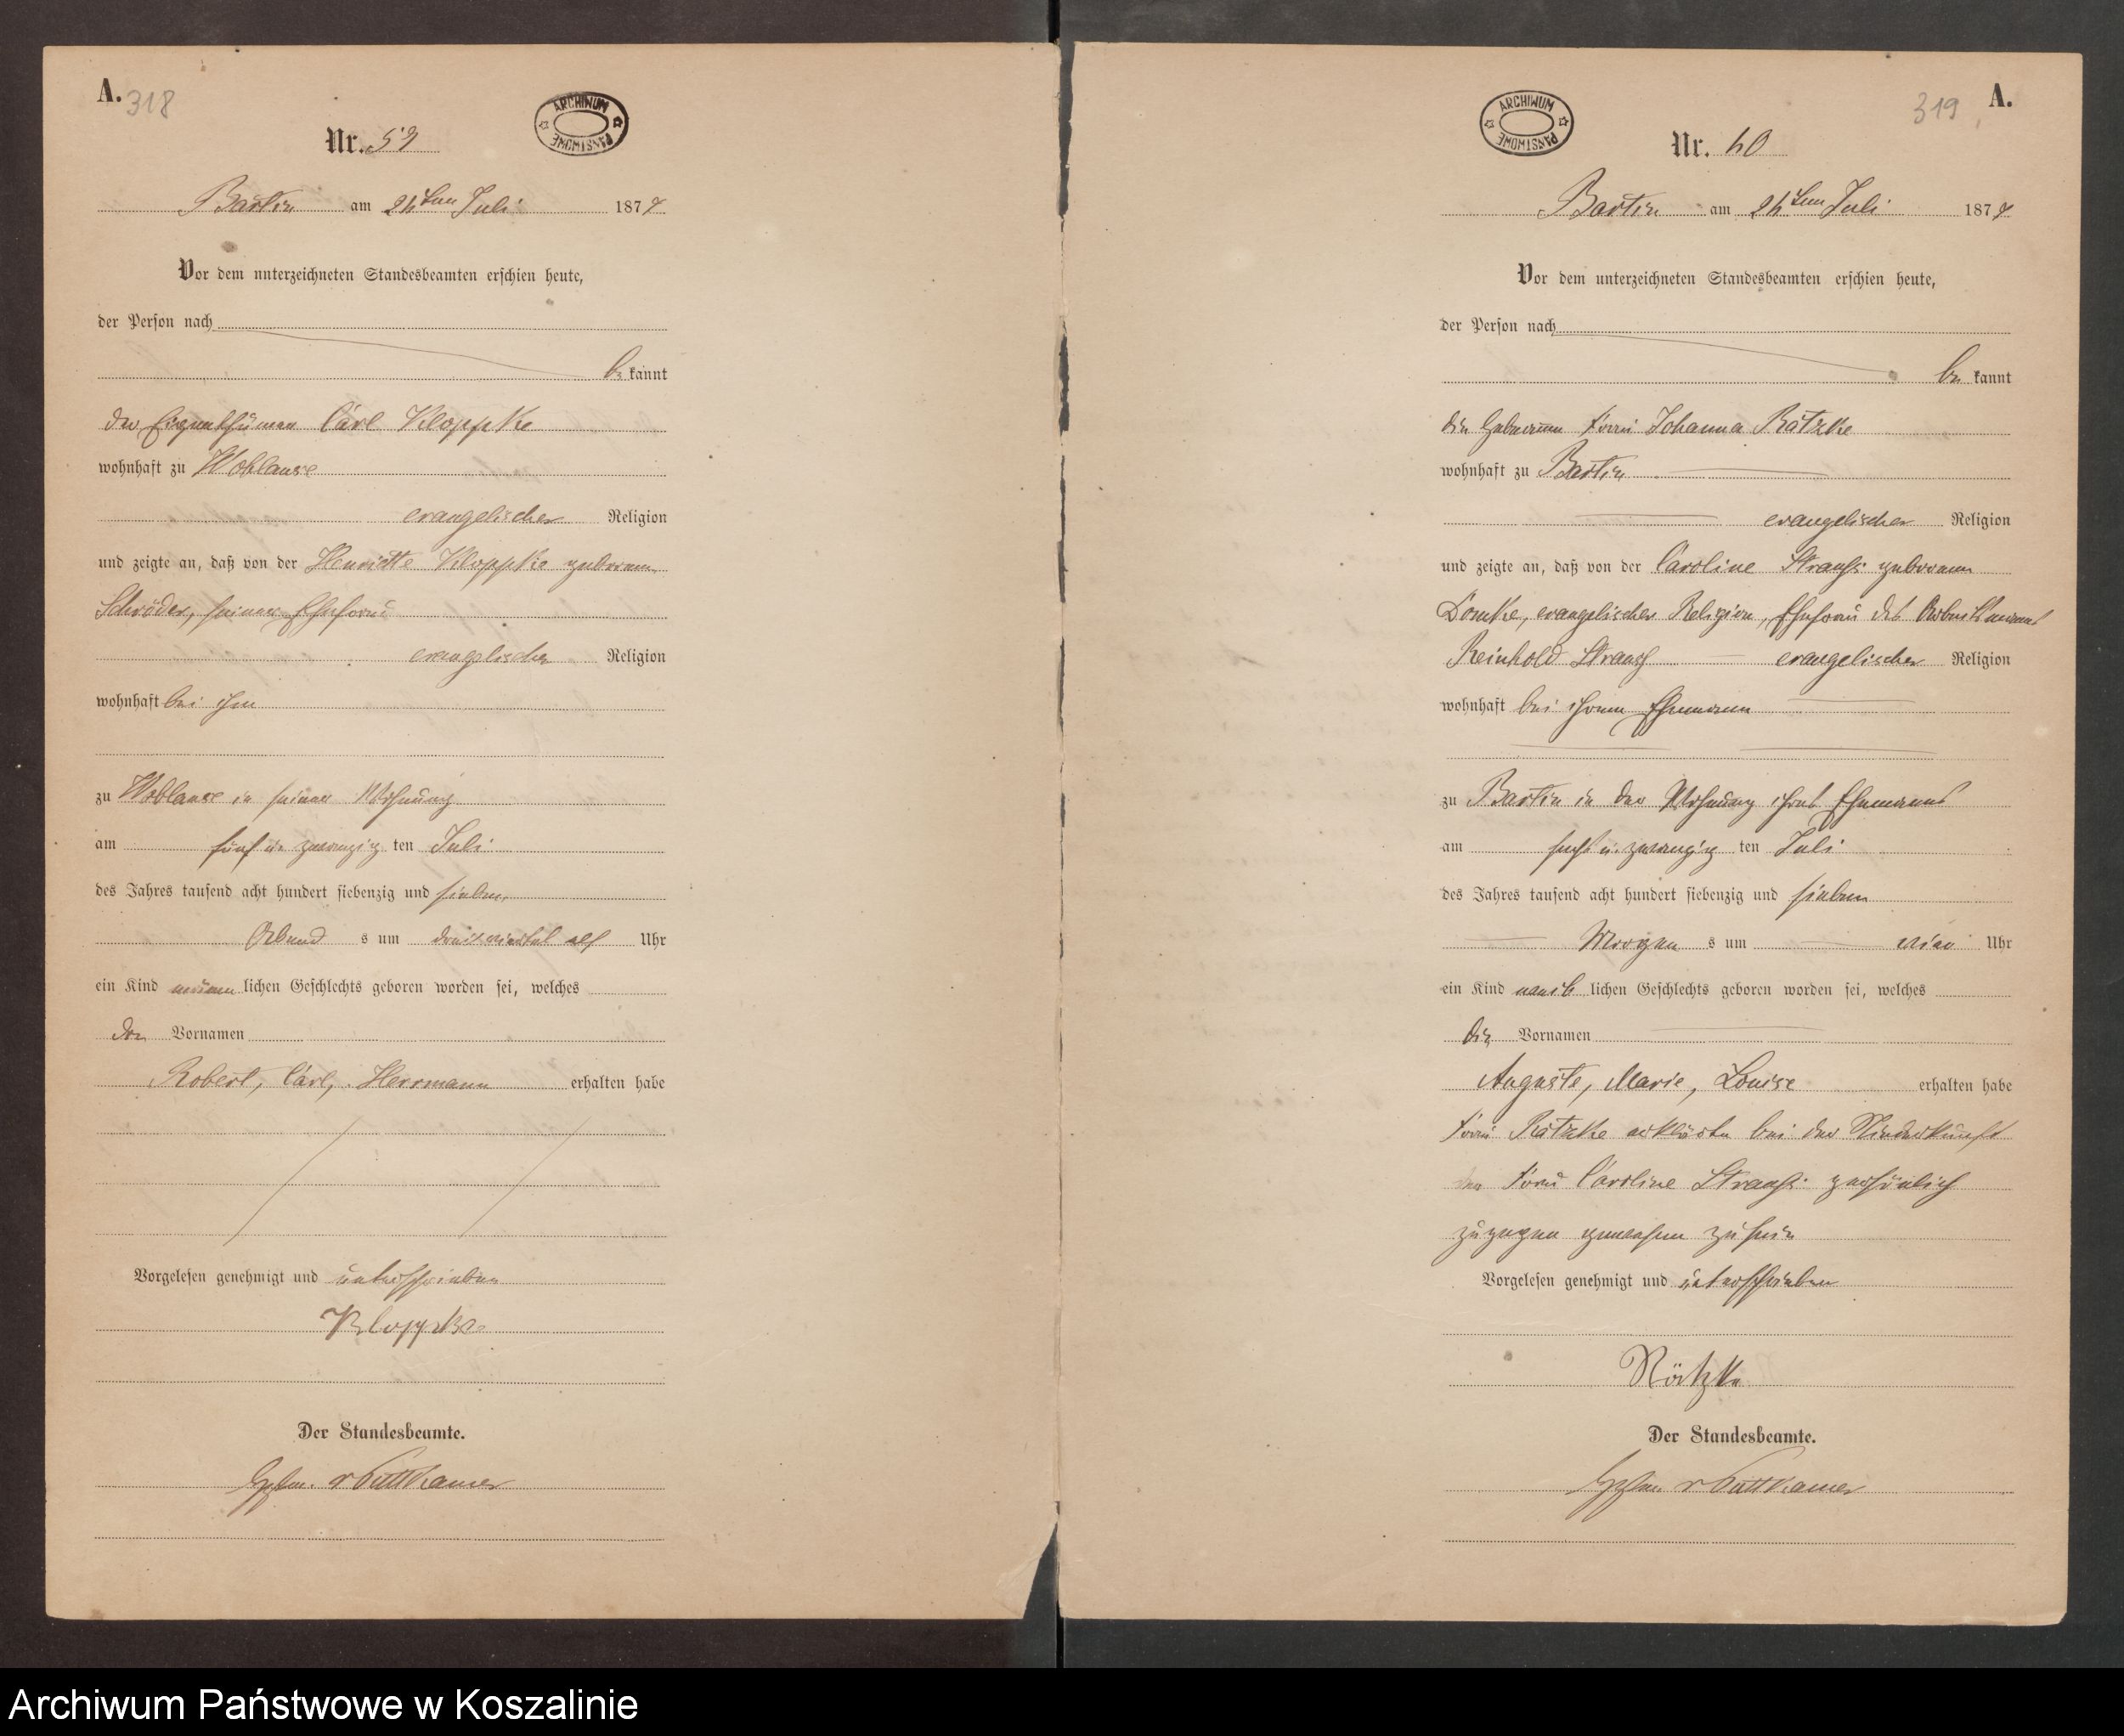 A. 318
ARCHIWUM PAŃSTWOWE
Nr. 59
Bartin am 26ten Juli 1877
Vor dem unterzeichneten Standesbeamten erschien heute,
der Person nach
be kannt
der Eigenthümer Carl Kloppke
wohnhaft zu Woblanse
evangelischer Religion
und zeigte an, daß von der Henriette Kloppke geborenen
Schröder, seiner Ehefrau
evangelischer Religion
wohnhaft bei ihm
zu Woblanse in seiner Wohnung
am fünf u. zwanzig ten Juli
des Jahres tausend acht hundert siebenzig und sieben
Abend s um dreiviertel elf Uhr
ein Kind männ lichen Geschlechts geboren worden sei, welches
den Vornamen
Robert, Carl, Herrmann erhalten habe
Vorgelesen genehmigt und unterschrieben
Kloppke
Der Standesbeamte.
v Puttkamer
319 A.
ARCHIWUM PAŃSTWOWE
Nr. 60
Bartin am 26ten Juli 1877
Vor dem unterzeichneten Standesbeamten erschien heute,
der Person nach
be kannt
die Hebamme Frau Johanna Rätzke
wohnhaft zu Bartin
evangelischer Religion
und zeigte an, daß von der Caroline Strauss geborenen
evangelischer Religion, Ehefrau des Arbeitsmanns
Reinhold Strauss evangelischer Religion
wohnhaft bei ihrem Ehemann
zu Bartin in der Wohnung ihres Ehemanns
am sechs u. zwanzig ten Juli
des Jahres tausend acht hundert siebenzig und sieben
Morgen s um vier Uhr
ein Kind weib lichen Geschlechts geboren worden sei, welches
die Vornamen
Auguste, Marie, Louise erhalten habe
Frau Rätzke erklärte bei der Niederkunft
der Frau Caroline Strauss persönlich
zugegen gewesen zu sein
Vorgelesen genehmigt und unterschrieben
Rätzke
Der Standesbeamte.
v Puttkamer
Archiwum Państwowe w Koszalinie